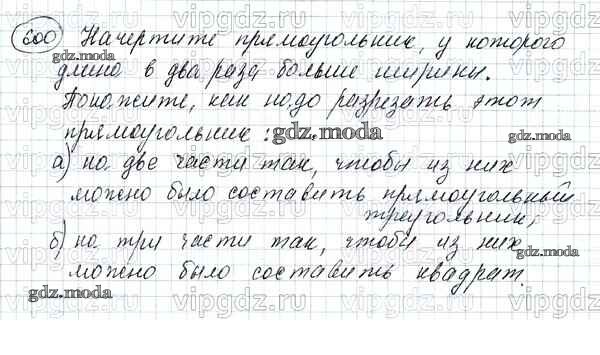 600 Начертите прямоугольник, у которого
gdz.moda
длина в два раза больше ширины.
Покажите, как надо разрезать этот
прямоугольник:
gdz.moda
gdz.moda
а) на две части так, чтобы из них
можно было составить прямоугольный
треугольник;
gdz.moda
б) на три части так, чтобы из них
gdz.moda
можно было составить квадрат.
gdz.moda
vipgdz.ru